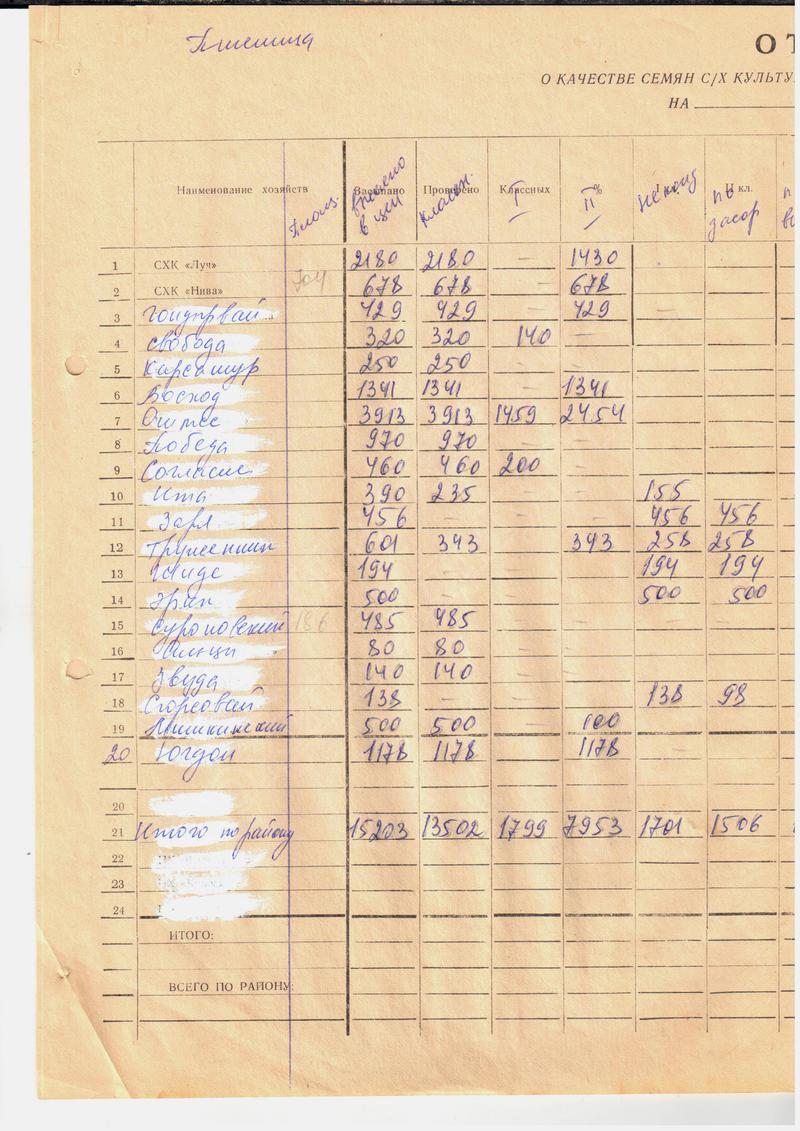 Пшеница
ОТ
О КАЧЕСТВЕ СЕМЯН С/Х КУЛЬТУ
НА
Наименование хозяйств Площ. Засыпано Проверено Классных % II кл.
в цен классн. I II не конд по засор
1 СХК «Луч» 2180 2180 — 1430
2 СХК «Нива» 704 678 678 — 678
3 429 429 — 429 —
4 Свобода 320 320 140 —
5 250 250 — —
6 Восход 1341 1341 — 1341
7 3913 3913 1459 2454
8 Победа 970 970 — —
9 Согласие 460 460 200 —
10 390 235 — — 155
11 Заря 456 — — — 456 456
12 Труженник 601 343 343 258 258
13 194 — — — 194 194
14 500 — — — 500 500
15 186 485 485 —
16 80 80 —
17 Звезда 140 140 —
18 138 — — 138 98
19 Мишкинский 500 500 — 100
20 1178 1178 — 1178 —
20
21 Итого по району 15203 13502 1799 7953 1701 1506
22
23
24
ИТОГО:
ВСЕГО ПО РАЙОНУ: